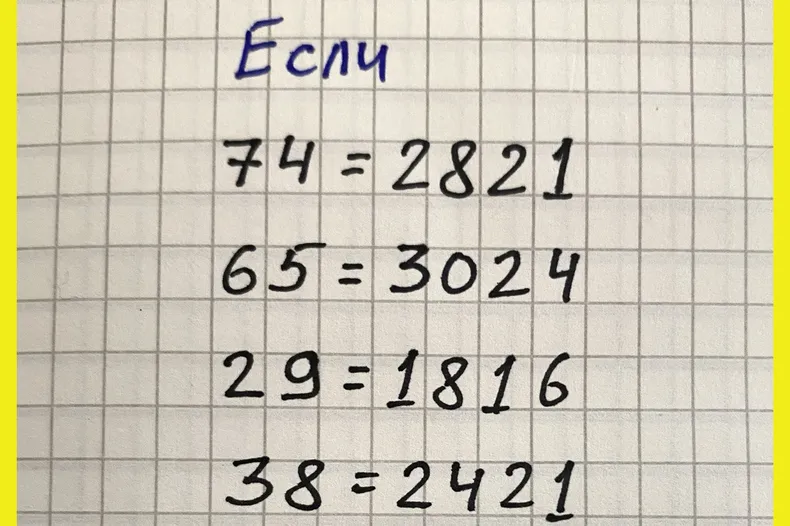 Если
74 = 2821
65 = 3024
29 = 1816
38 = 2421